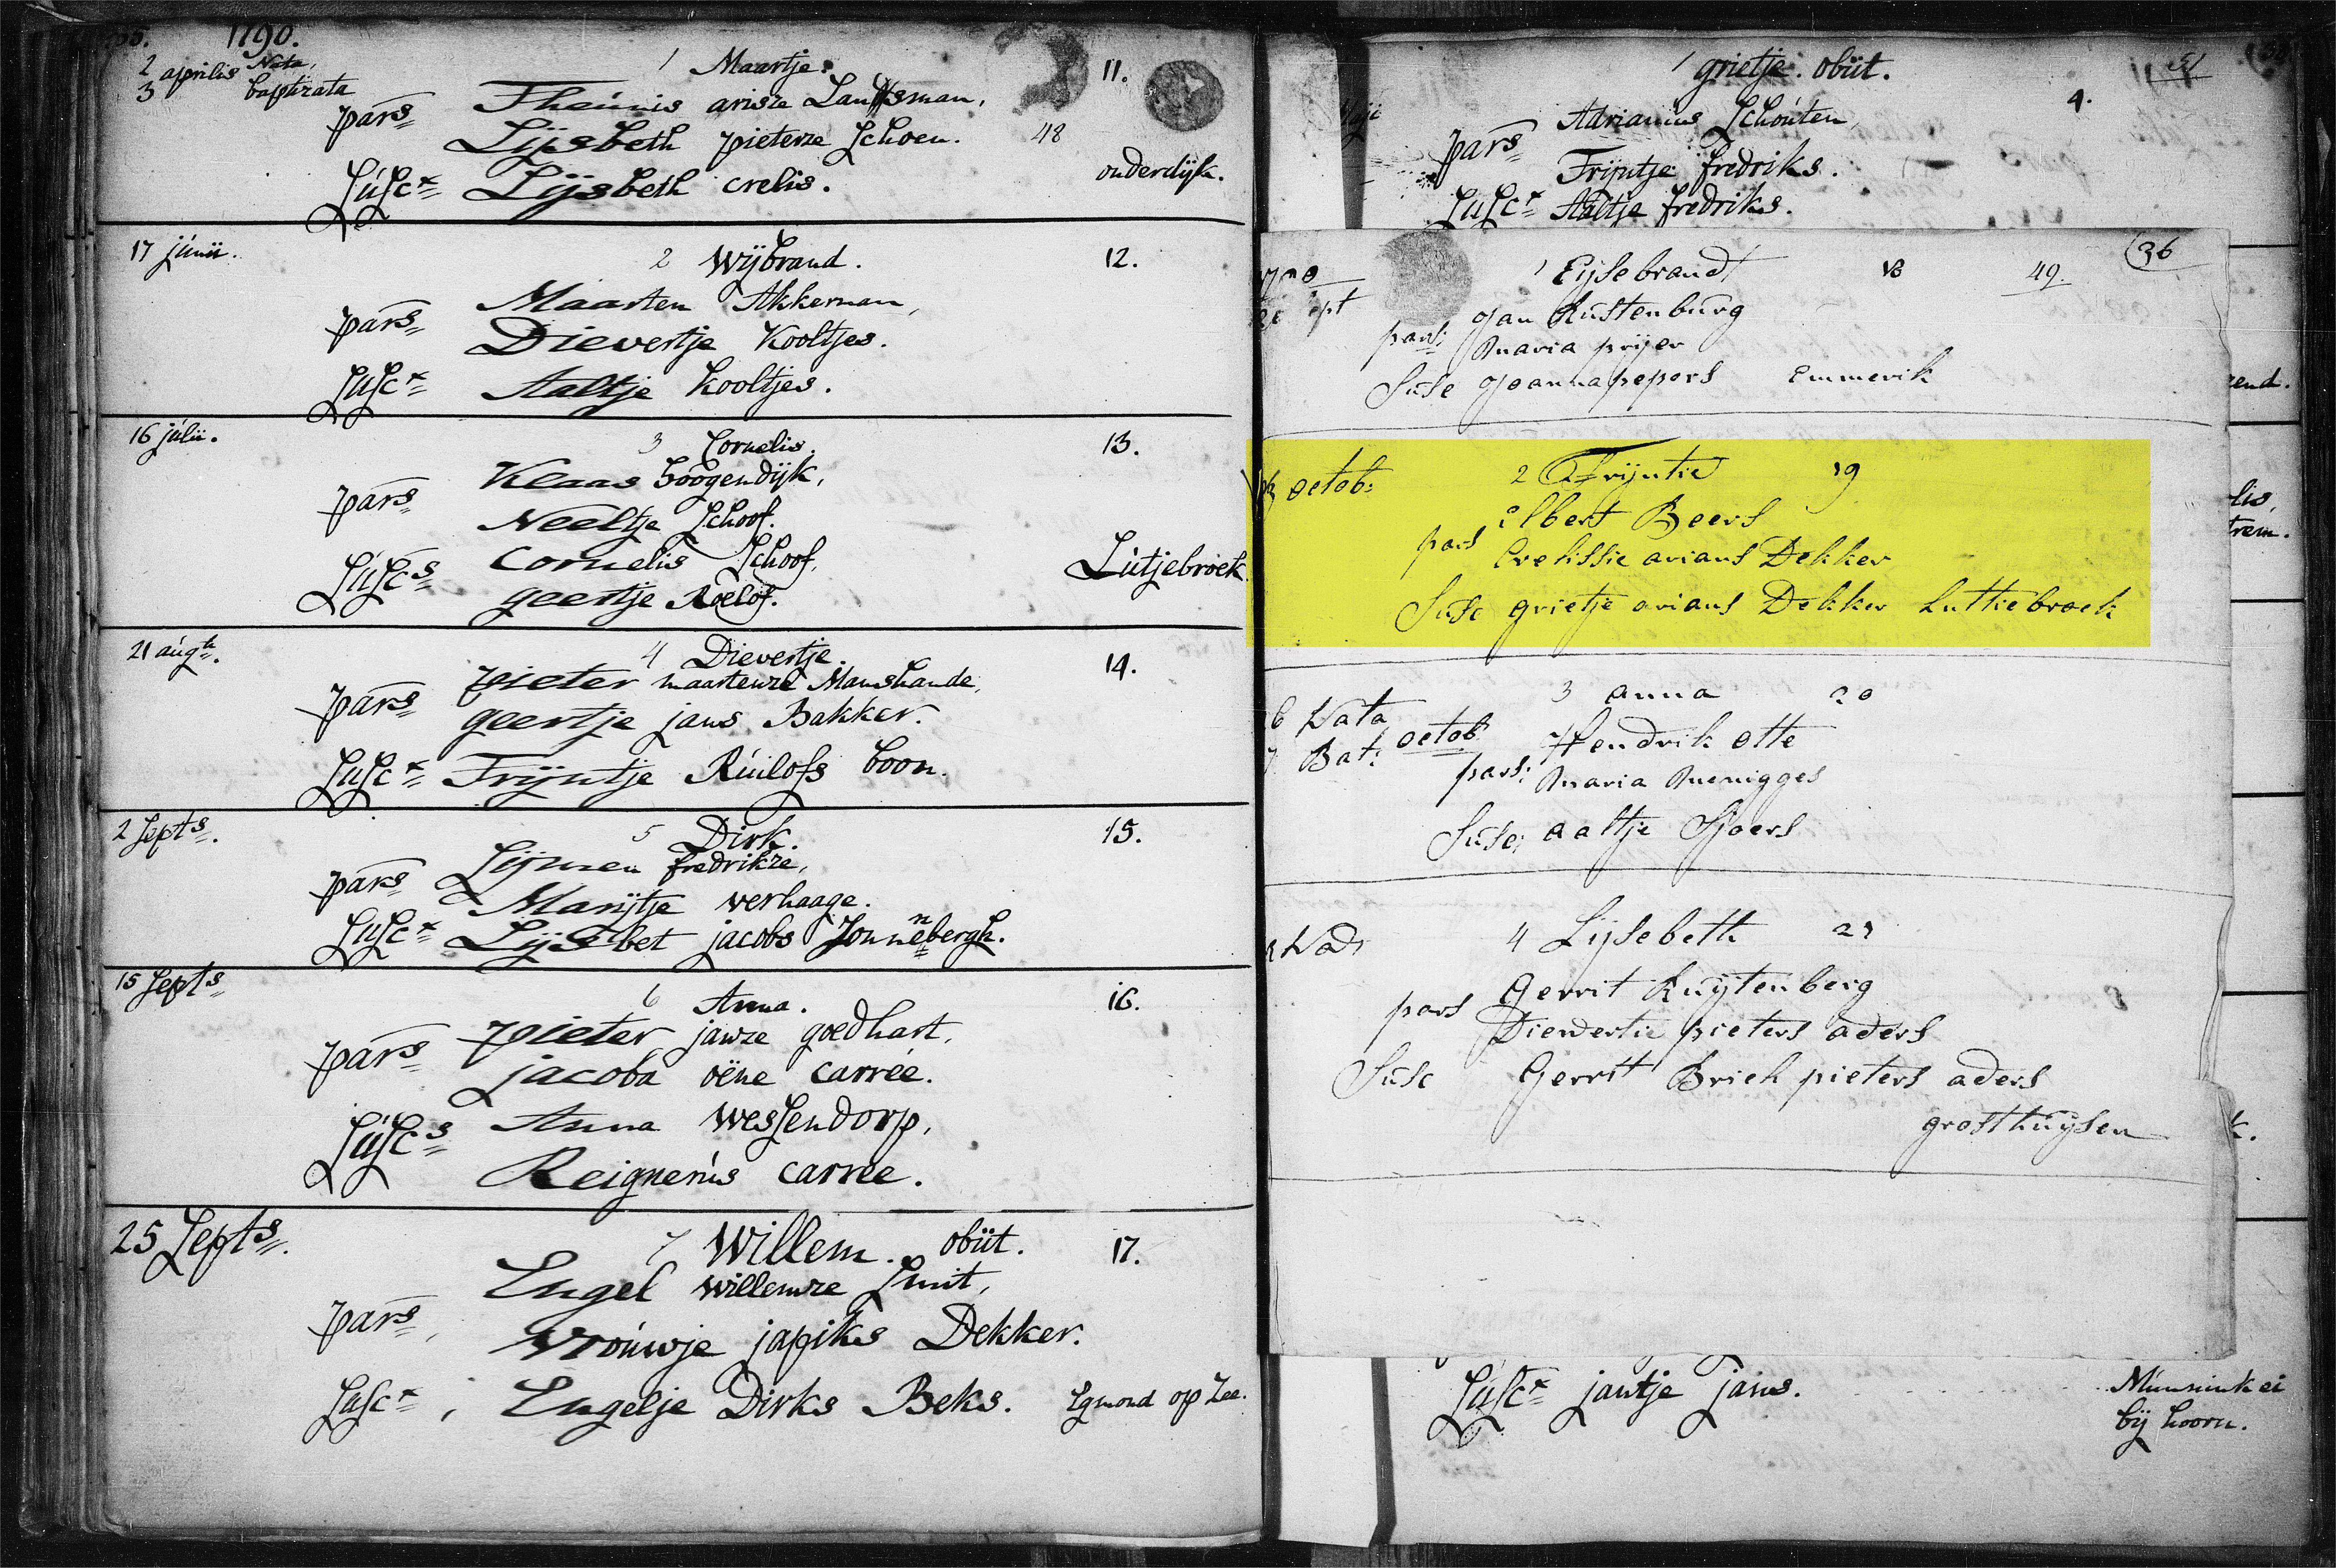 1790.
2 aprilis Nata,
3 baptizata
1 Maartje.
11.
pars Theunis arisze Landsman,
Lijsbeth pieterze Schoen.
48
Susc Lijsbeth crelis.
onderdijk.
17 junii.
2 Wijbrand.
12.
pars Maarten Akkerman,
Dievertje Kooltjes.
Susc Aaltje Kooltjes.
16 julii.
3 Cornelis.
13.
pars Klaas hoogendijk,
Neeltje Schoof.
Suscs Cornelis Schoof,
geertje Roelof.
Lutjebroek.
21 augti.
4 Dievertje.
14.
pars pieter maartenze Manshande,
geertje jans Bakker.
Susc Trijntje Ruilofs boon.
2 Septs.
5 Dirk.
15.
pars Sijmen fredrikze,
Marijtje verhaage.
Susc Lijsbet jacobs Sonnebergh.
15 Septs
6 Anna.
16.
pars pieter janze goedhart,
jacoba oëne carrée.
Suscs Anna Wessendorp,
Reignerus carree.
25 Septs.
7 Willem. obiit.
17.
pars Engel willemze Smit,
Vrouwje japiks Dekker.
Susc Engelje Dirks Beks.
Egmond op Zee.
1 grietje. obiit.
51
4.
pars Adrianus Schouten,
Trijntje fredriks.
Susc Aaltje fredriks.
1 Eijsebrand
18
49.
36
pars: Jan Rustenburg
Maria prijer
Susc Joanna pepers Emmerik
octob:
2 Trijntie
19
pars Elbert Beers
Crelissie arians Dekker
Susc grietje arians Dekker Luttiebroek
3 anna
20
6 Nata
7 Bat: octob
pars: Hendrik otte
Maria Muenigges
Susc: aaltje Sjoers
4 Lijsebeth
21
pars Gerrit Ruijtenberg
Diewertie pieters aders
Susc Gerrit Brich pieters aders
grosthuijsen
Susc jantje jans.
Munnink ei
bij hoorn.